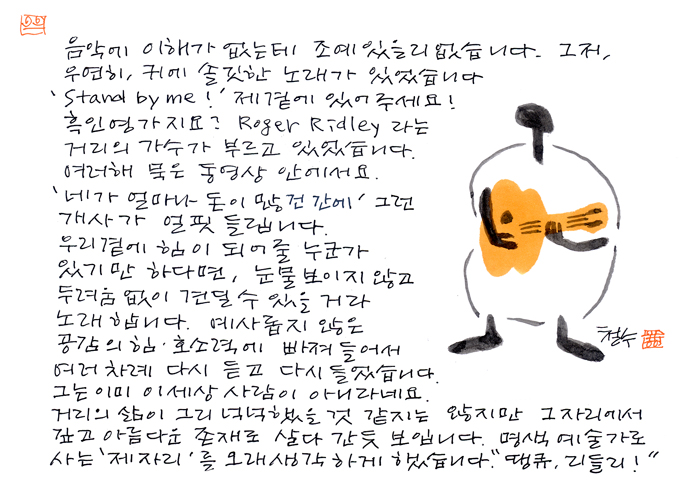 음악에 이해가 없는데 조예있을리 없습니다. 그저,
우연히, 귀에 솔깃한 노래가 있었습니다
'Stand by me!' 제곁에 있어 주세요!
흑인영가지요? Roger Ridley 라는
거리의 가수가 부르고 있었습니다.
여러해 묵은 동영상 안에서요.
'네가 얼마나 돈이 많건 간에' 그런
개사가 얼핏 들립니다.
우리곁에 힘이 되어줄 누군가
있기만 하다면, 눈물 보이지 않고
두려움 없이 견딜 수 있을 거라
노래합니다. 예사롭지 않은
공감의 힘·호소력에 빠져 들어서
여러 차례 다시 듣고 다시 들었습니다.
그는 이미 이 세상 사람이 아니라네요.
거리의 삶이 그리 녹녹했을 것 같지는 않지만 그자리에서
깊고 아름다운 존재로 살다 간듯 보입니다. 명색 예술가로
사는 '제자리'를 오래 생각하게 했습니다. "땡큐, 리들리!"
철수